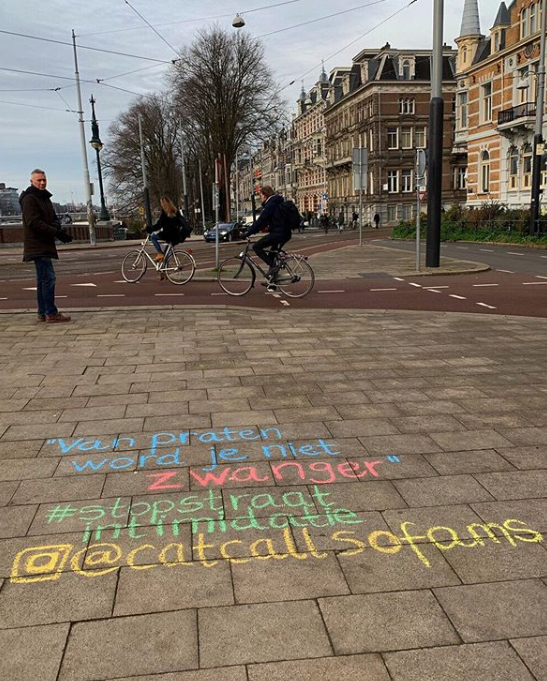 "Van praten
word je niet
zwanger"
#stopstraat
intimidatie
@catcallsofams